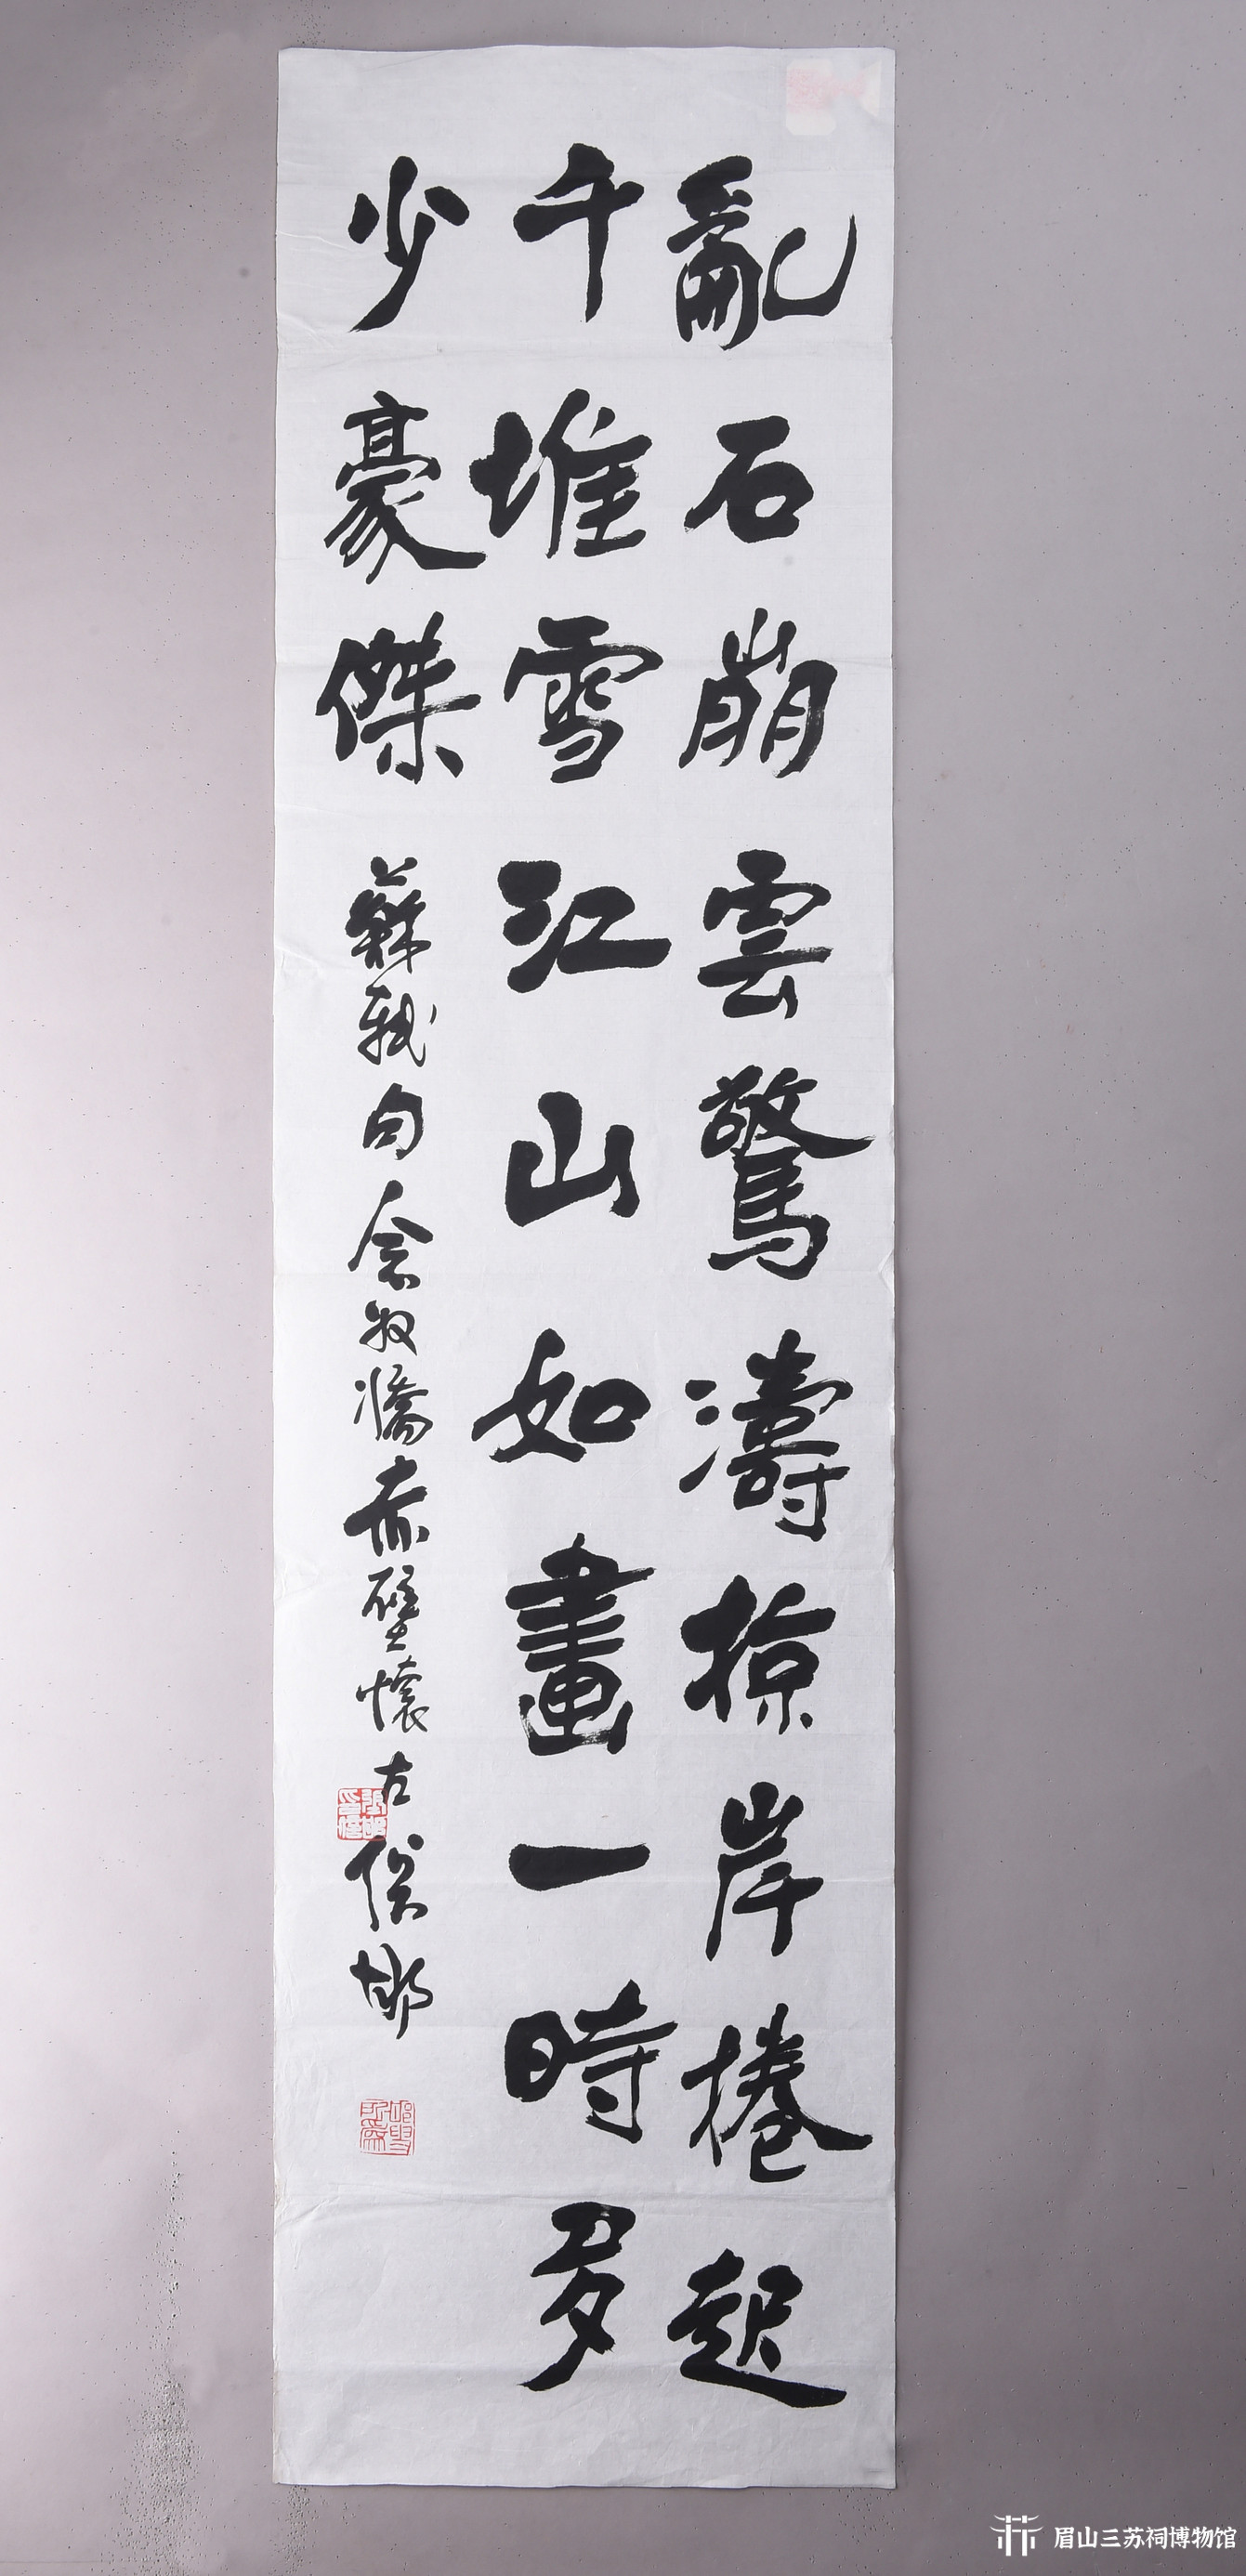 亂石崩雲驚濤掠岸捲起
千堆雪江山如畫一時多
少豪傑
蘇軾句念奴嬌赤壁懷古
眉山三苏祠博物馆